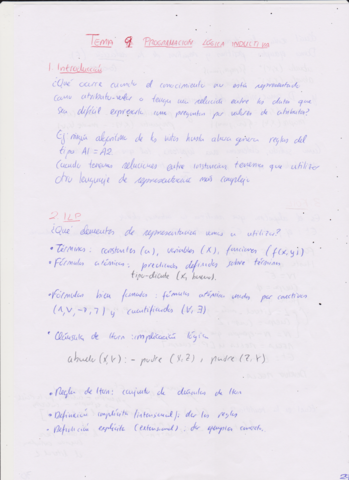 TEMA 9 PROGRAMACION LÓGICA INDUCTIVA
1. Introducción
¿Qué ocurre cuando el conocimiento no está representado
como atributo-valor o tenga una relación entre los datos que
sea difícil expresarla como pregunta por valores de atributos?
Ej ningún algoritmo de los vistos hasta ahora genera reglas del
tipo A1=A2.
Cuando tenemos relaciones entre instancias tenemos que utilizar
otro lenguaje de representación más complejo
2. ILP
¿Qué elementos de representación vamos a utilizar?
• Términos: constantes (a), variables (X), funciones (f(x,y))
• Fórmulas atómicas: predicados definidos sobre términos
tipo-cliente (X, bueno).
• Fórmulas bien formadas: fórmulas atómicas unidas por conectivas
(∧, ∨, →, ¬) y cuantificadas (∀, ∃)
• Cláusula de Horn: implicación lógica
abuelo (X,Y) :- padre (X,Z), padre (Z,Y).
• Reglas de Horn: conjunto de cláusulas de Horn
• Definición implícita (intensional): dar las reglas
• Definición explícita (extensional): dar ejemplos